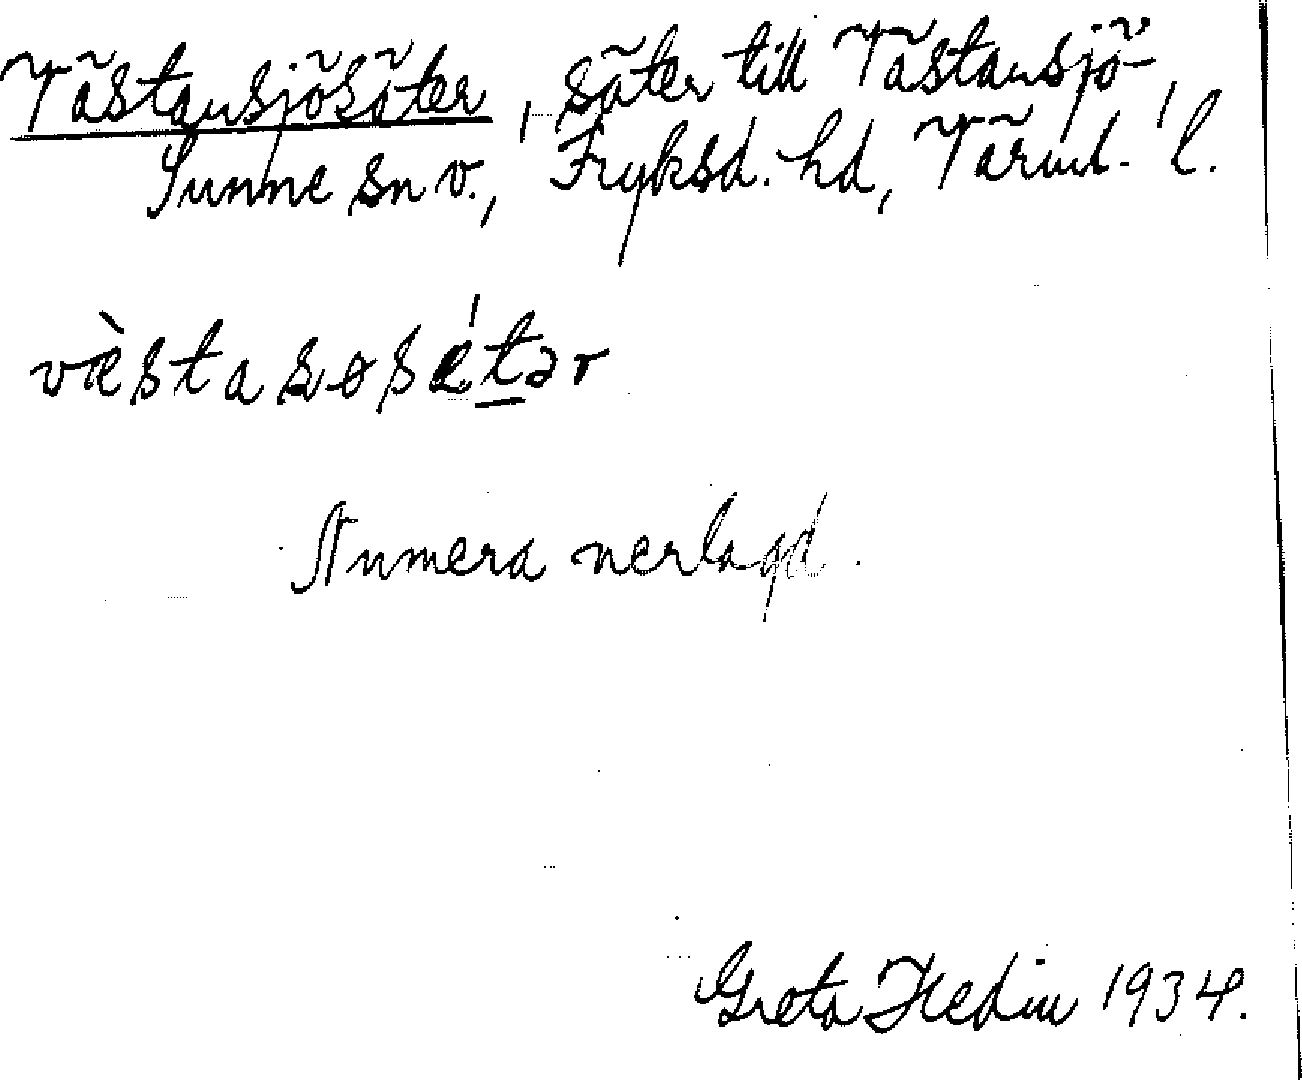 Västansjösäter, säter till Västansjö,
Sunne sn v., Fryksd. hd, Värml. l.
væ̀stasøsǽtər
Numera nerlagd.
Greta Hedin 1934.